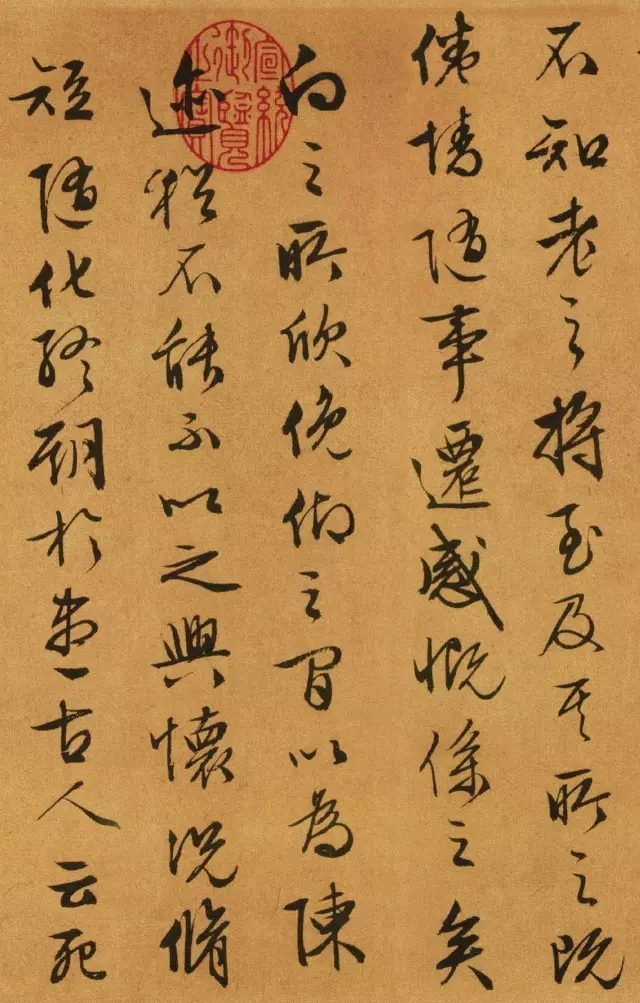 不知老之將至及其所之既
倦情隨事遷感慨係之矣
向之所欣俛仰之間以為陳
迹猶不能不以之興懷況脩
短隨化終期於盡古人云死
宣統御覽之寶